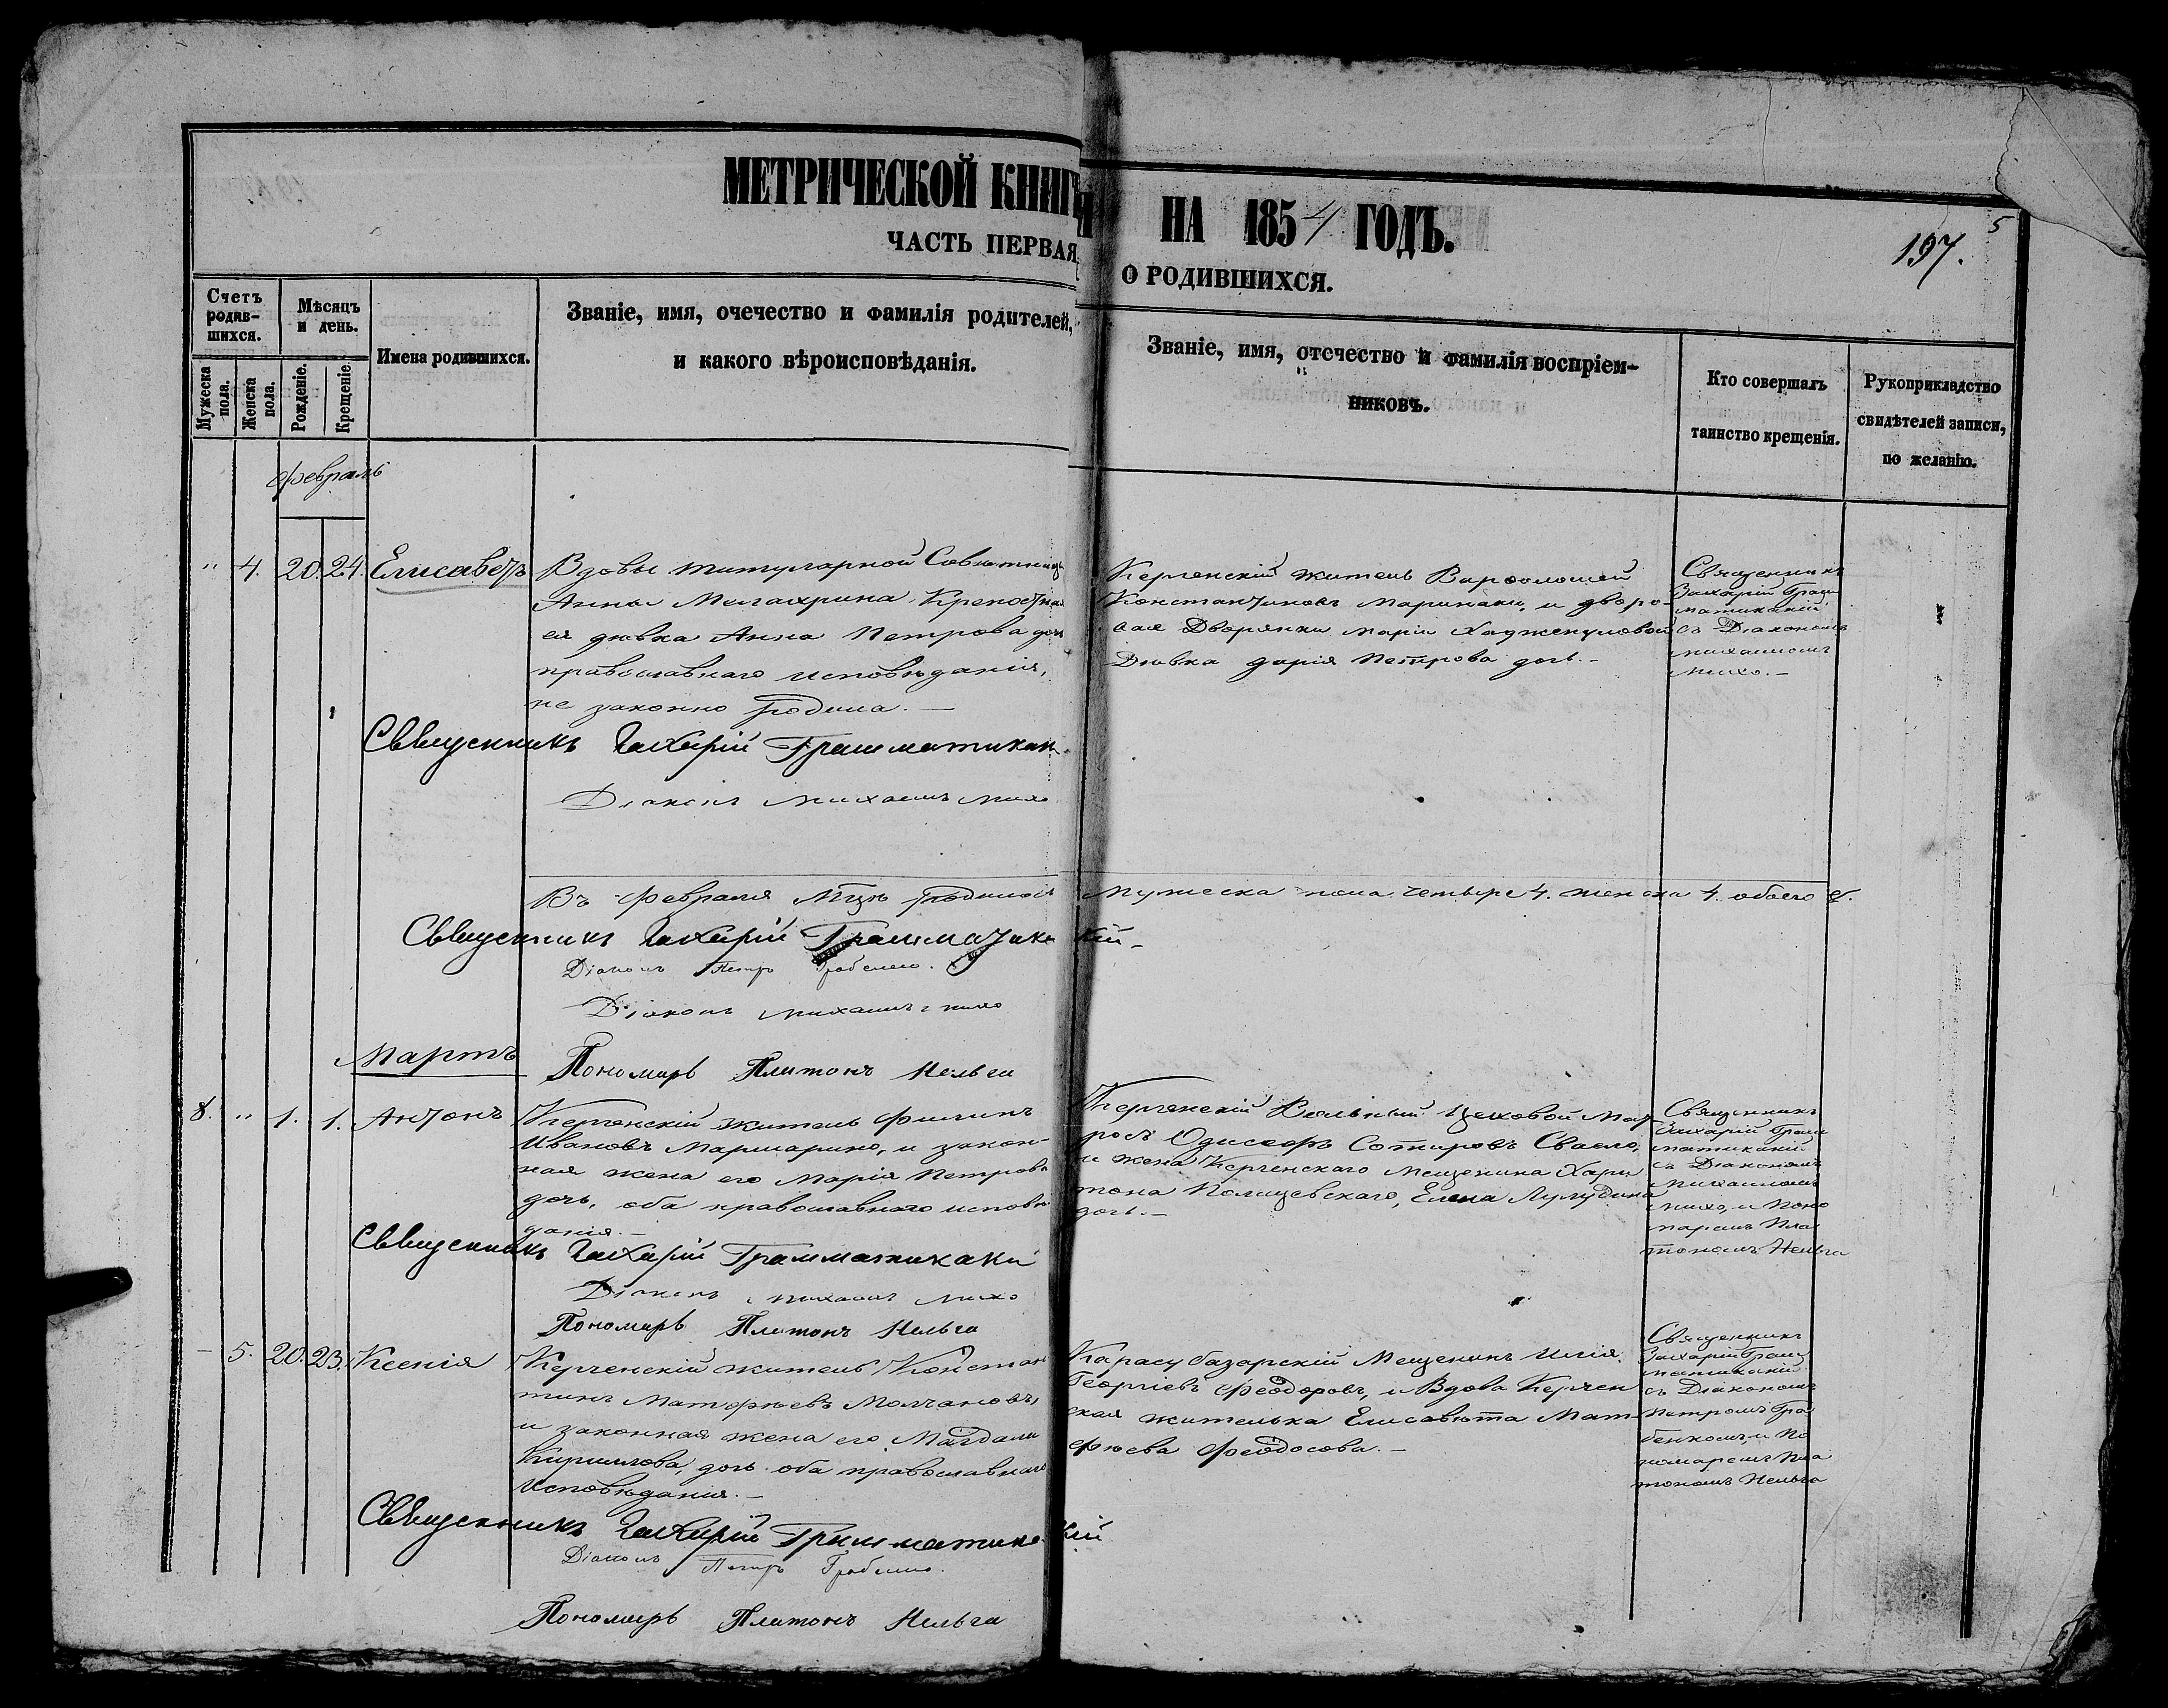 МЕТРИЧЕСКОЙ КНИГИ НА 1854 ГОДЪ.
ЧАСТЬ ПЕРВАЯ, О РОДИВШИХСЯ.
5
197.
Счетъ родив-
шихся.
Мѣсяцъ
и день.
Имена родившихся.
Званіе, имя, очечество и фамилія родителей,
и какого вѣроисповѣданія.
Званіе, имя, отечество и фамилія воспріем-
никовъ.
Кто совершалъ
таинство крещенія.
Рукоприкладство
свидѣтелей записи,
по желанію.
Мужеска пола.
Женска пола.
Рожденіе.
Крещеніе.
Февраль
" 4. 20. 24. Елисаветъ
Вдовы титулярной Совѣтницы
Анны Мелахрина Крепостна
ея дѣвка Анна Петрова дочь
православнаго исповѣданія,
не законно родила. —
Керченскій житель Варфоломей
Константиновъ Маринаки, и дворо-
вая Дворянки Маріи
Дѣвка Дарія Петрова дочь. —
Священникъ
Захарій Грам
матикакій
съ Діакономъ
Михаиломъ
Михо. —
Священникъ Захарій Грамматикаки
Діаконъ Михаилъ Михо
Въ Февралѣ Мцѣ родилось мужеска пола четыре 4. женска 4. обоего 8.
Священникъ Захарій Грамматикакій —
Діаконъ Петръ Грабенко.
Діаконъ Михаилъ Михо
Пономарь Платонъ Нельга
Мартъ
8. " 1. 1. Антонъ
Керченскій житель Филипъ
Ивановъ Мармарино, и закон-
ная жена его Марія Петрова
дочь, оба православнаго исповѣ
данія. —
Керченскій Вольный Цеховой Мат
росъ Одисефъ Сотировъ
и жена Керченскаго Мещенина Хари
тона Полицевскаго, Елена
дочь. —
Священникъ
Захарій Грам
матикакій
съ Діакономъ
Михаиломъ
Михо, и Поно
маремъ Пла
тономъ Нельга
Священникъ Захарій Грамматикаки
Діаконъ Михаилъ Михо
Пономарь Платонъ Нельга
— 5. 20. 23. Ксенія
Керченскій житель Констан
тинъ Матфѣевъ Молчановъ,
и законная жена его Магдали
Кирилова, дочь оба православнаго
Исповѣданія. —
Карасубазарскій Мещенинъ Илія
Георгіевъ Феодоровъ, и Вдова Керчен
ская жителька Елисавѣта Мат-
фѣева Феодосова. —
Священникъ
Захарій Грам
матикакій
съ Діакономъ
Петромъ Гра
бенкомъ, и По
номаремъ Пла
тономъ Нельга
Священникъ Захарій Грамматикакій
Діаконъ Петръ Грабенко.
Пономарь Платонъ Нельга